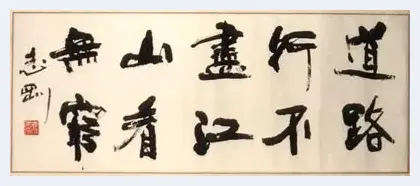 道路
行不
盡江
山看
無窮
志剛